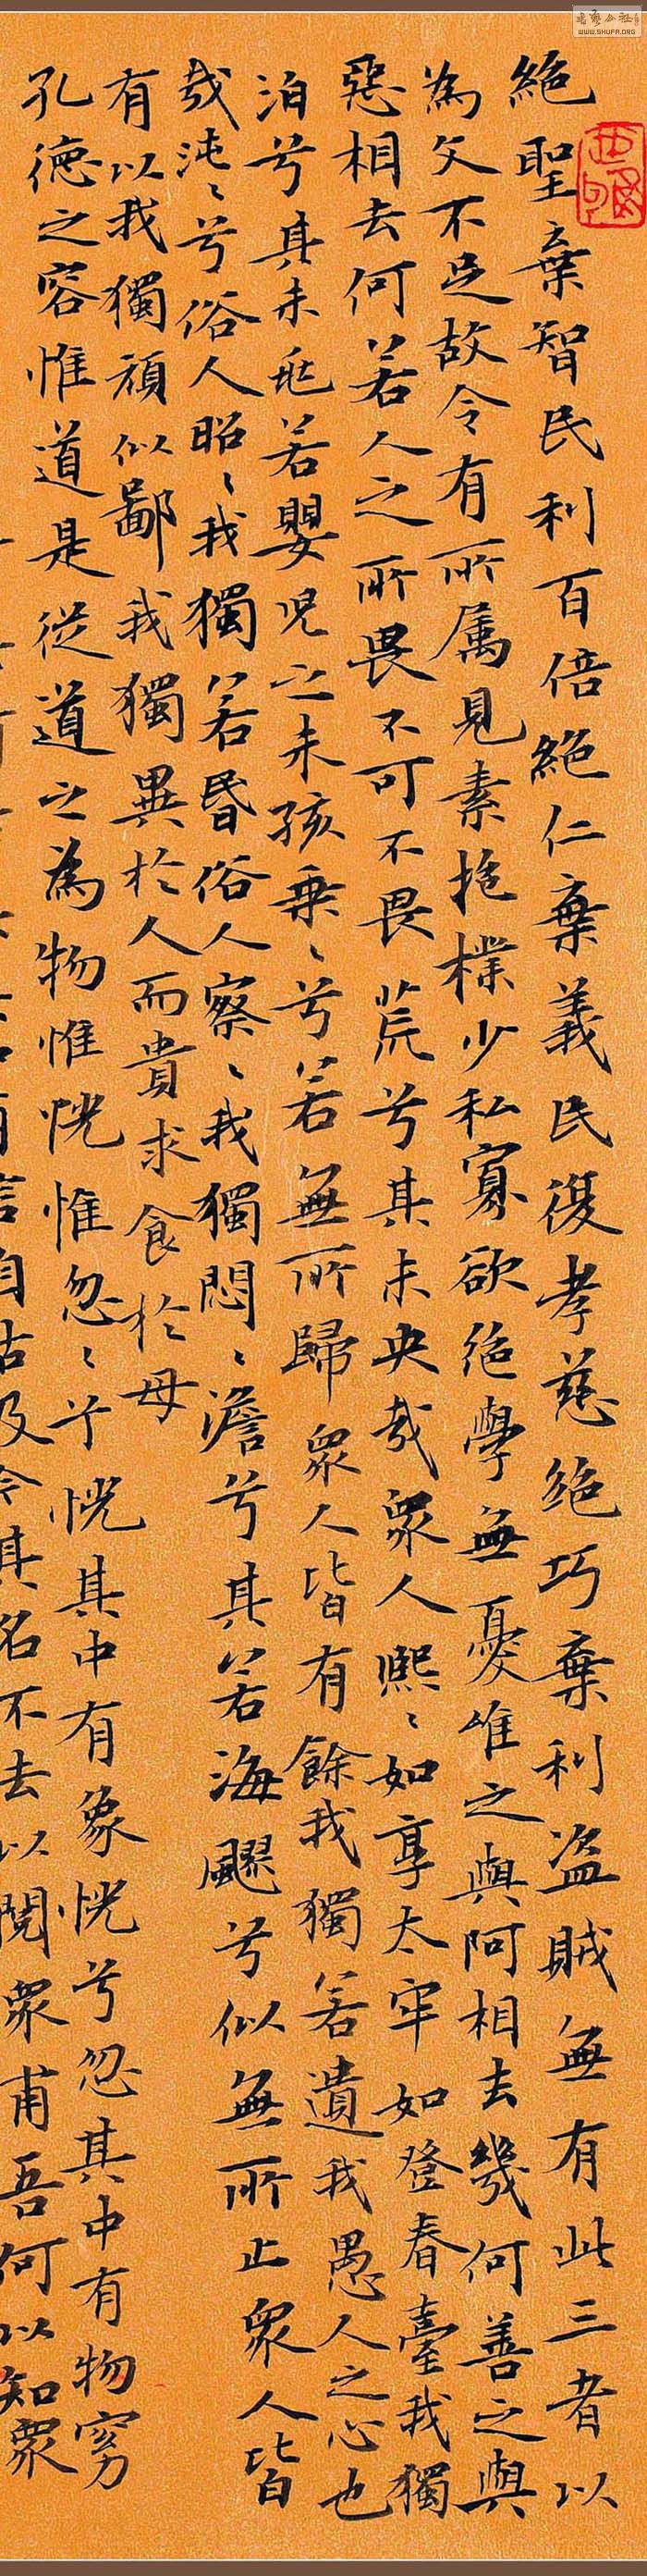 WWW.SHUFA.ORG
絕聖棄智民利百倍絕仁棄義民復孝慈絕巧棄利盜賊無有此三者以
為文不足故令有所属見素抱樸少私寡欲絕學無憂唯之與阿相去幾何善之與
惡相去何若人之所畏不可不畏荒兮其未央哉眾人熙〻如享太牢如登春臺我獨
泊兮其未兆若嬰児之未孩乘〻兮若無所歸眾人皆有餘我獨若遺我愚人之心也
哉沌〻兮俗人昭〻我獨若昏俗人察〻我獨悶〻澹兮其若海飂兮似無所止眾人皆
有以我獨頑似鄙我獨異於人而貴求食於母
孔德之容惟道是從道之為物惟恍惟忽〻兮恍其中有象恍兮忽其中有物窈
言自古及今其名不去以閱眾甫吾何以知眾